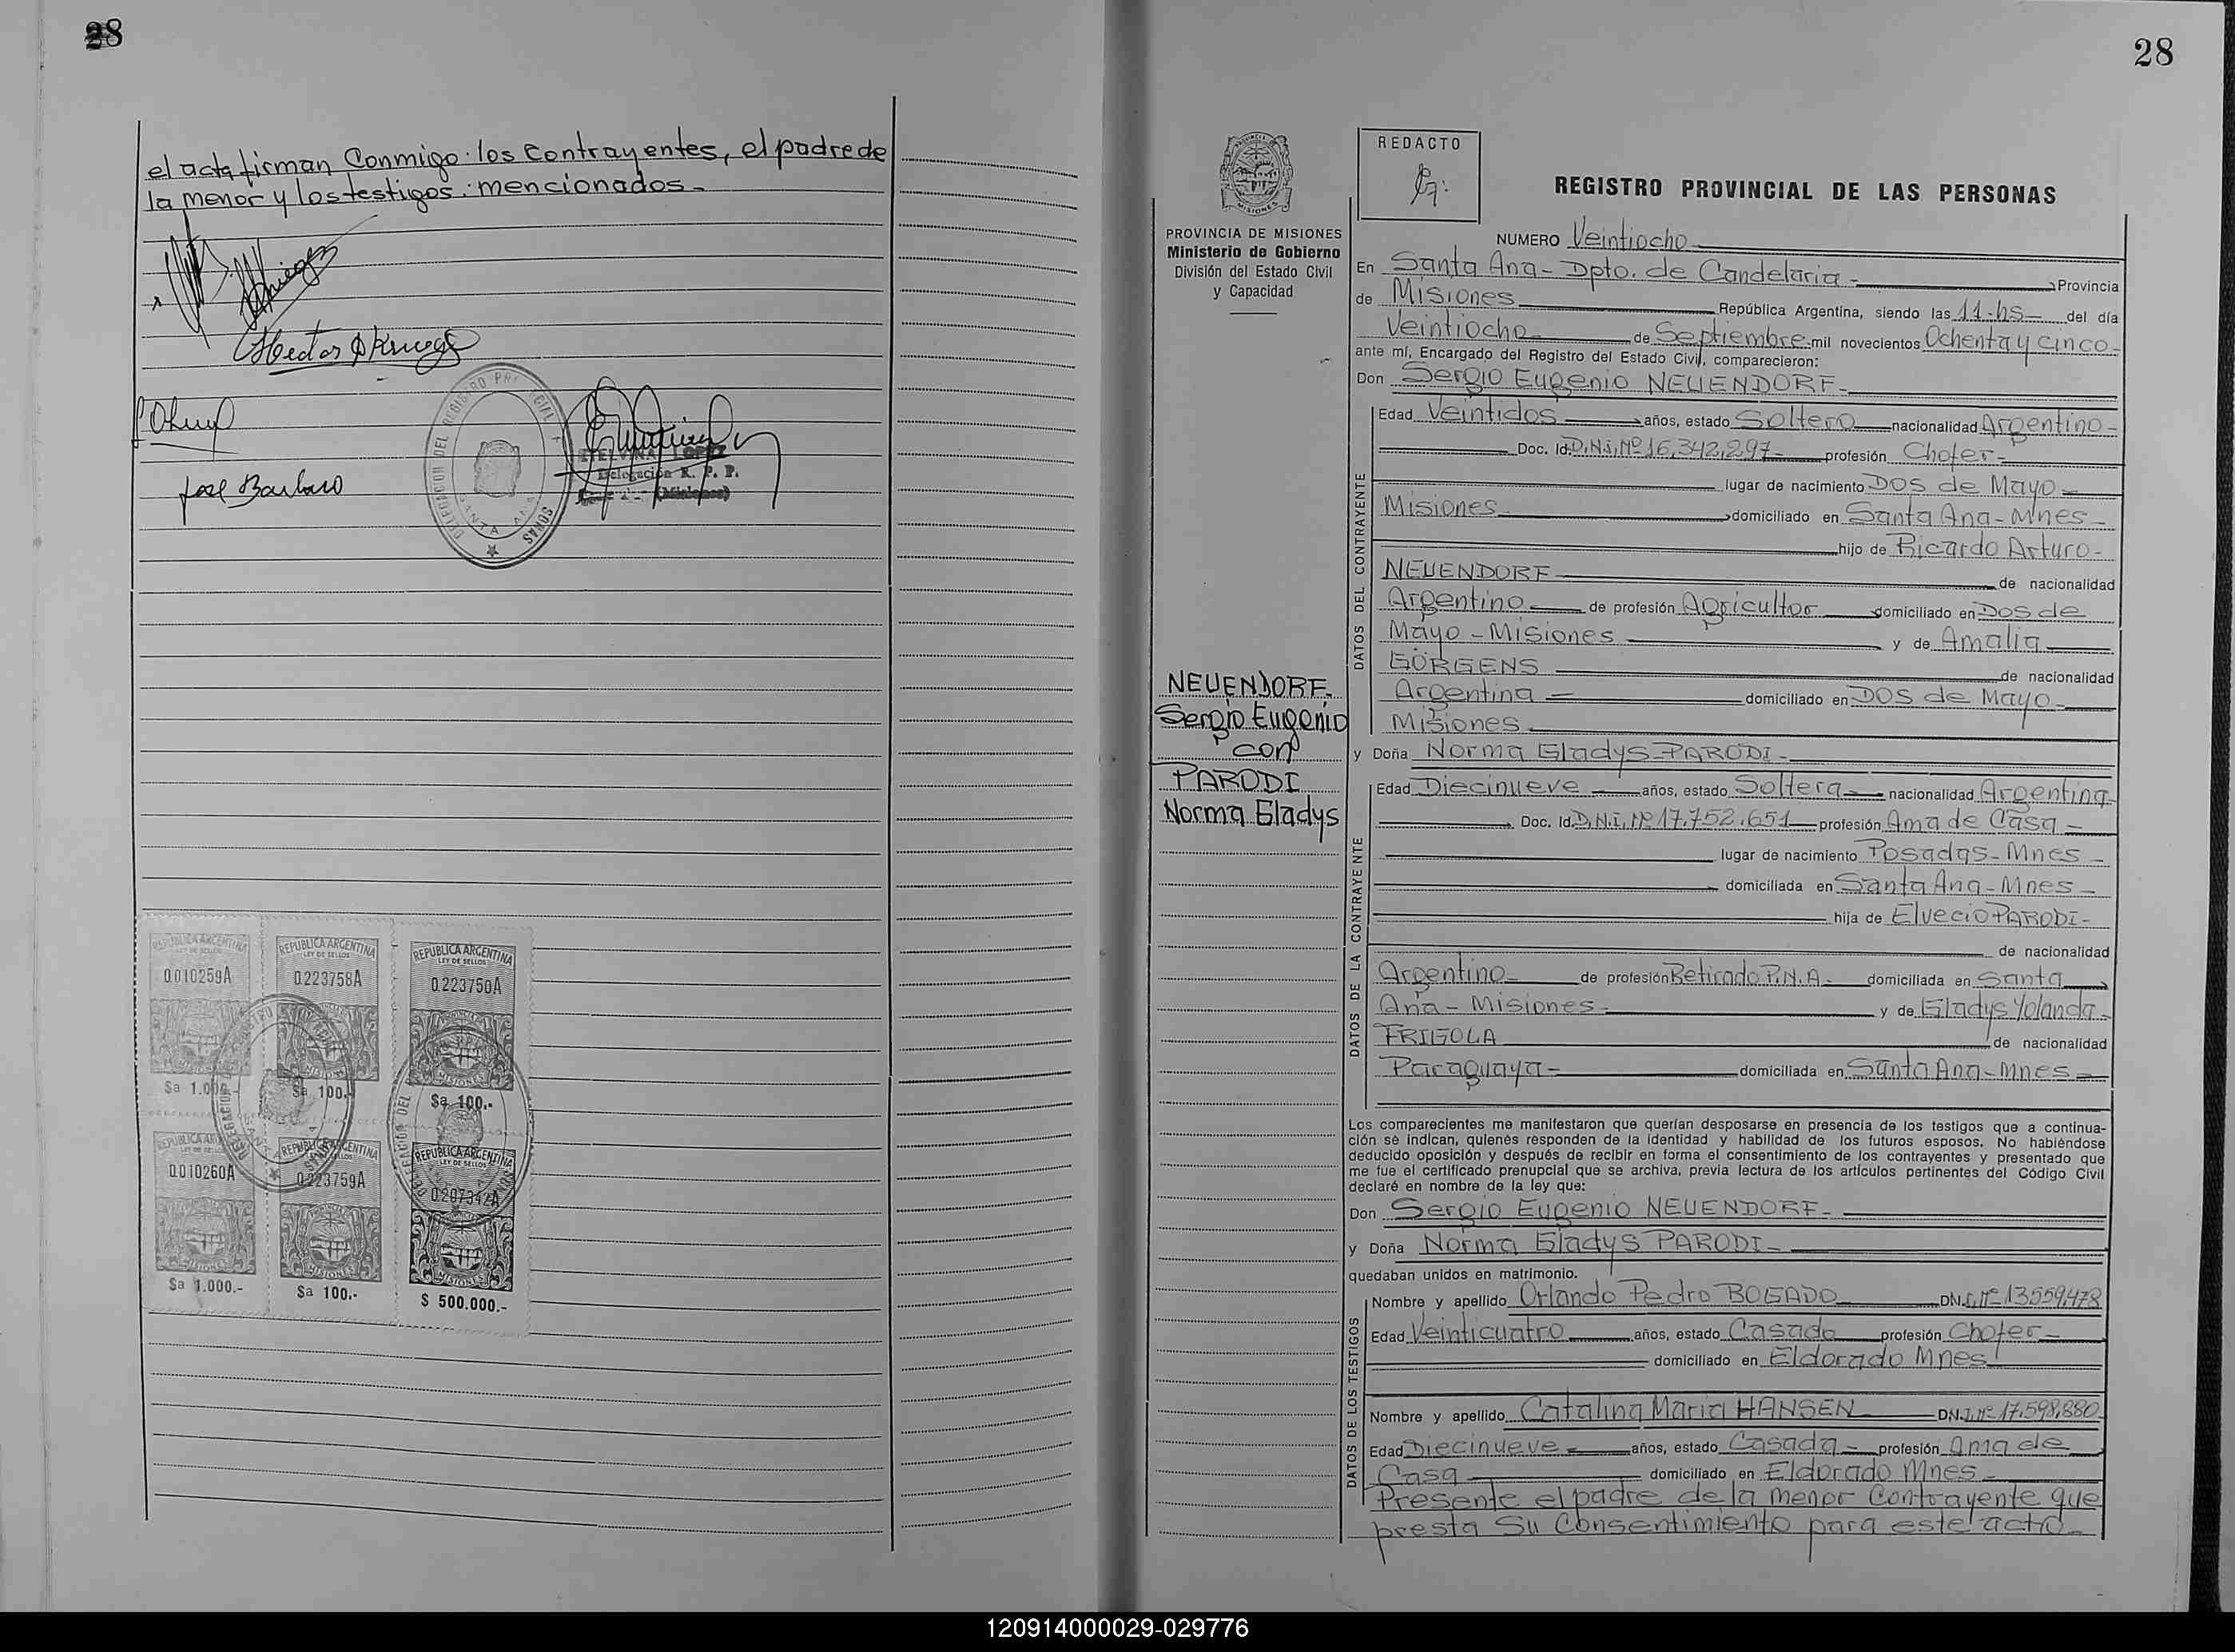 28
el acta firman Conmigo los Contrayentes, el padre de
la menor y los testigos mencionados-
Jose Barbaro
DELEGACION DEL REGISTRO PROVINCIAL
SANTA ANA
ETELVINA LOPEZ
Delegación R. P. P.
(Misiones)
REPUBLICA ARGENTINA
LEY DE SELLOS
0.010259A
MISIONES
$a 1.000.-
REPUBLICA ARGENTINA
LEY DE SELLOS
0.223758A
MISIONES
$a 100.-
REPUBLICA ARGENTINA
LEY DE SELLOS
0.223750A
MISIONES
$a 100.-
REPUBLICA ARGENTINA
0.010260A
MISIONES
$a 1.000.-
REPUBLICA ARGENTINA
0.223759A
MISIONES
$a 100.-
REPUBLICA ARGENTINA
LEY DE SELLOS
0.207342A
MISIONES
$ 500.000.-
28
MISIONES
PROVINCIA DE MISIONES
Ministerio de Gobierno
División del Estado Civil
y Capacidad
NEUENDORF
Sergio Eugenio
con
PARODI
Norma Gladys
REDACTO
REGISTRO PROVINCIAL DE LAS PERSONAS
NUMERO Veintiocho
En Santa Ana - Dpto. de Candelaria - Provincia
de Misiones República Argentina, siendo las 11-hs- del día
Veintiocho de Septiembre mil novecientos Ochenta y cinco-
ante mí, Encargado del Registro del Estado Civil, comparecieron:
Don Sergio Eugenio NEUENDORF-
DATOS DEL CONTRAYENTE
Edad Veintidos años, estado Soltero nacionalidad Argentino-
Doc. Id. D.N.I. Nº 16.342.297- profesión Chofer-
lugar de nacimiento Dos de Mayo-
Misiones domiciliado en Santa Ana-Mnes-
hijo de Ricardo Arturo-
NEUENDORF de nacionalidad
Argentino de profesión Agricultor domiciliado en Dos de
Mayo-Misiones y de Amalia
GÖRGENS de nacionalidad
Argentina domiciliado en Dos de Mayo-
Misiones
y Doña Norma Gladys PARODI-
DATOS DE LA CONTRAYENTE
Edad Diecinueve años, estado Soltera nacionalidad Argentina
Doc. Id. D.N.I. Nº 17.752.651 profesión Ama de Casa-
lugar de nacimiento Posadas-Mnes-
domiciliada en Santa Ana-Mnes-
hija de Elvecio PARODI-
de nacionalidad
Argentino- de profesión Retirado P.N.A. domiciliada en Santa
Ana-Misiones- y de Gladys Yolanda-
FRIGOLA de nacionalidad
Paraguaya- domiciliada en Santa Ana-Mnes-
Los comparecientes me manifestaron que querían desposarse en presencia de los testigos que a continua-
ción se indican, quienés responden de la identidad y habilidad de los futuros esposos. No habiéndose
deducido oposición y después de recibir en forma el consentimiento de los contrayentes y presentado que
me fue el certificado prenupcial que se archiva, previa lectura de los artículos pertinentes del Código Civil
declaré en nombre de la ley que:
Don Sergio Eugenio NEUENDORF-
y Doña Norma Gladys PARODI-
quedaban unidos en matrimonio.
DATOS DE LOS TESTIGOS
Nombre y apellido Orlando Pedro BOGADO DN.I. Nº 13.559.478
Edad Veinticuatro años, estado Casado profesión Chofer-
domiciliado en Eldorado Mnes
Nombre y apellido Catalina Maria HANSEN DN.I. Nº 17.598.880
Edad Diecinueve- años, estado Casada- profesión Ama de
Casa domiciliado en Eldorado Mnes-
Presente el padre de la menor Contrayente que
presta su Consentimiento para este acto-
120914000029-029776